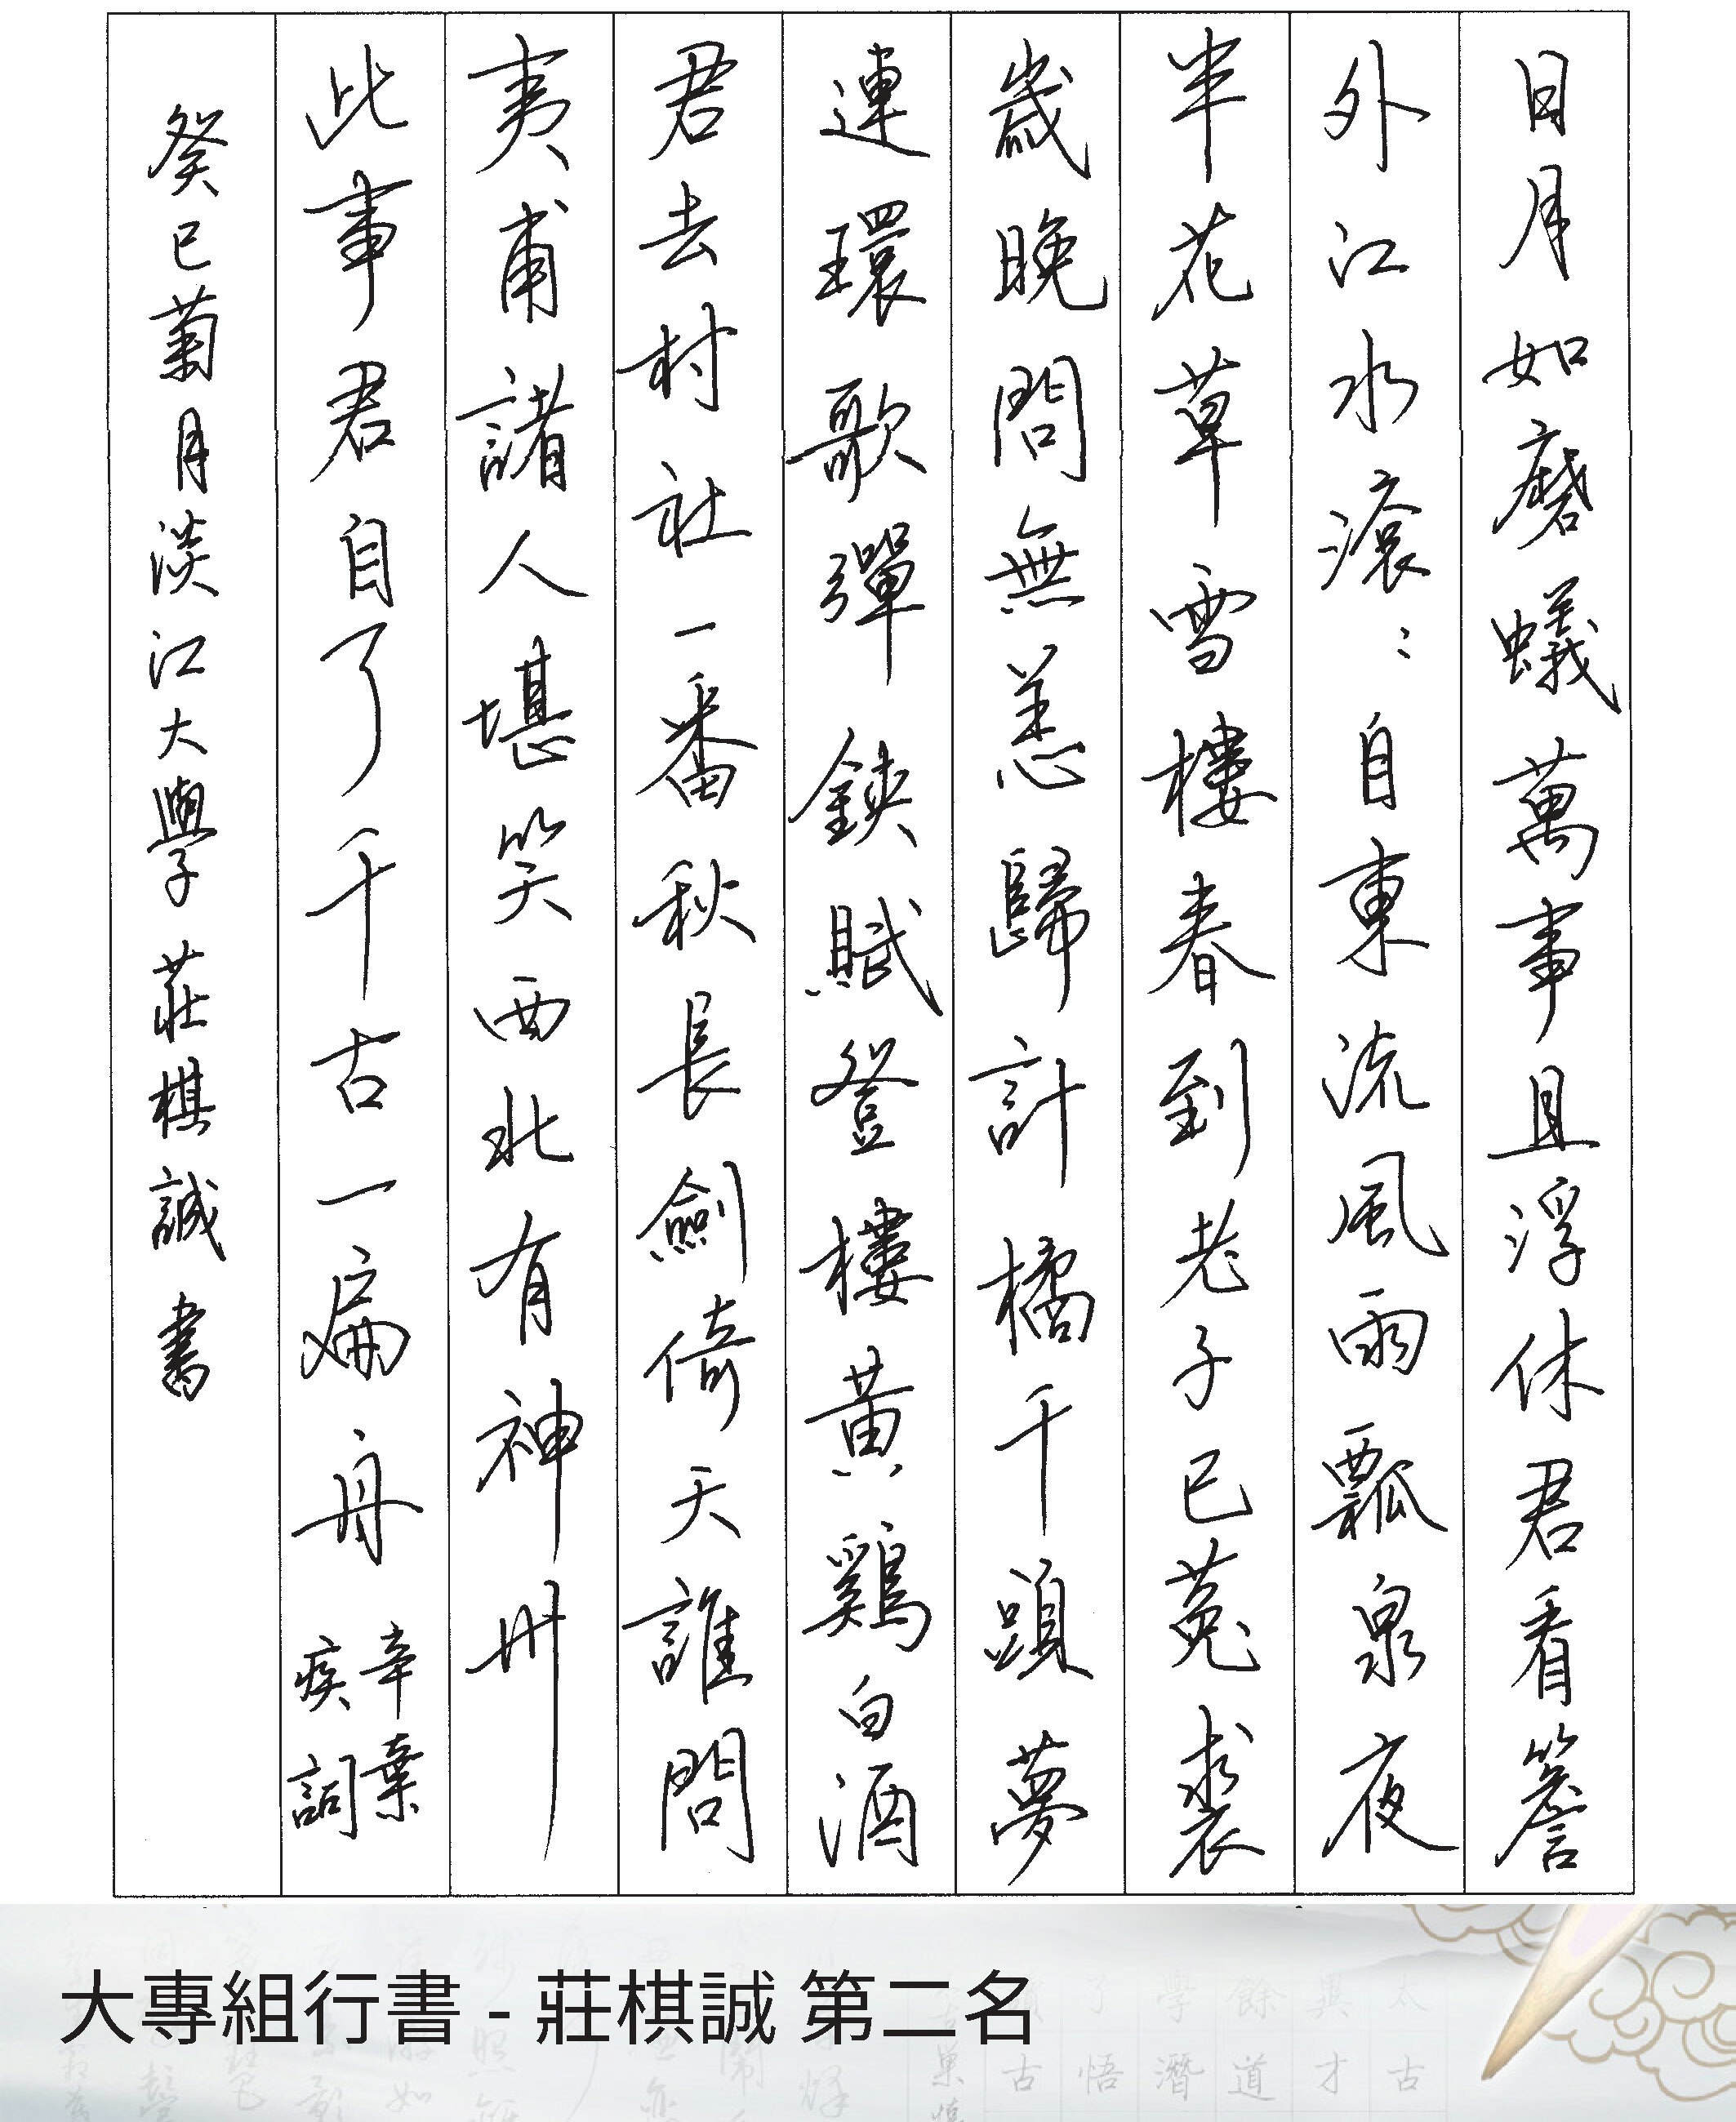 日月如磨蟻萬事且浮休君看簷
外江水滾〻自東流風雨瓢泉夜
半花草雪樓春到老子已菟裘
歲晚問無恙歸計橘千頭夢
連環歌彈鋏賦登樓黃鷄白酒
君去村社一番秋長劍倚天誰問
夷甫諸人堪笑西北有神州
此事君自了千古一扁舟 辛棄
疾詞
癸巳菊月淡江大學莊棋誠書
大專組行書 - 莊棋誠 第二名